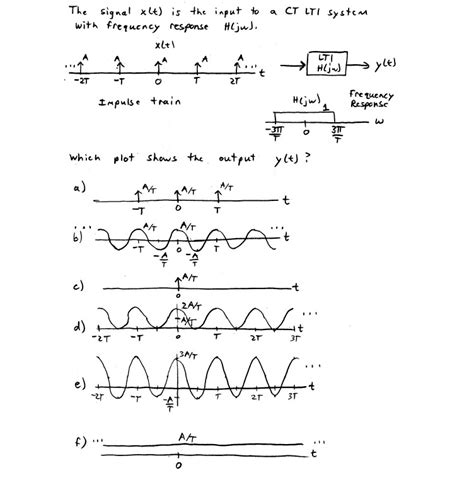 The signal x(t) is the input to a CT LTI system
with frequency response H(jω).
x(t)
... A A A A A ...
-2T -T 0 T 2T t
LTI
H(jω) y(t)
Impulse train
H(jω) 1 Frequency
Response
-3π/T 0 3π/T ω
Which plot shows the output y(t) ?
a) A/T A/T A/T
-T 0 T t
b) ... A/T A/T ...
-T 0 T t
-A/T -A/T
c) A/T
0 t
d) 2A/T ...
A/T
-2T -T 0 T 2T 3T t
e) 3A/T ...
-2T -T T 2T 3T t
-A/T
f) ... A/T ...
0 t